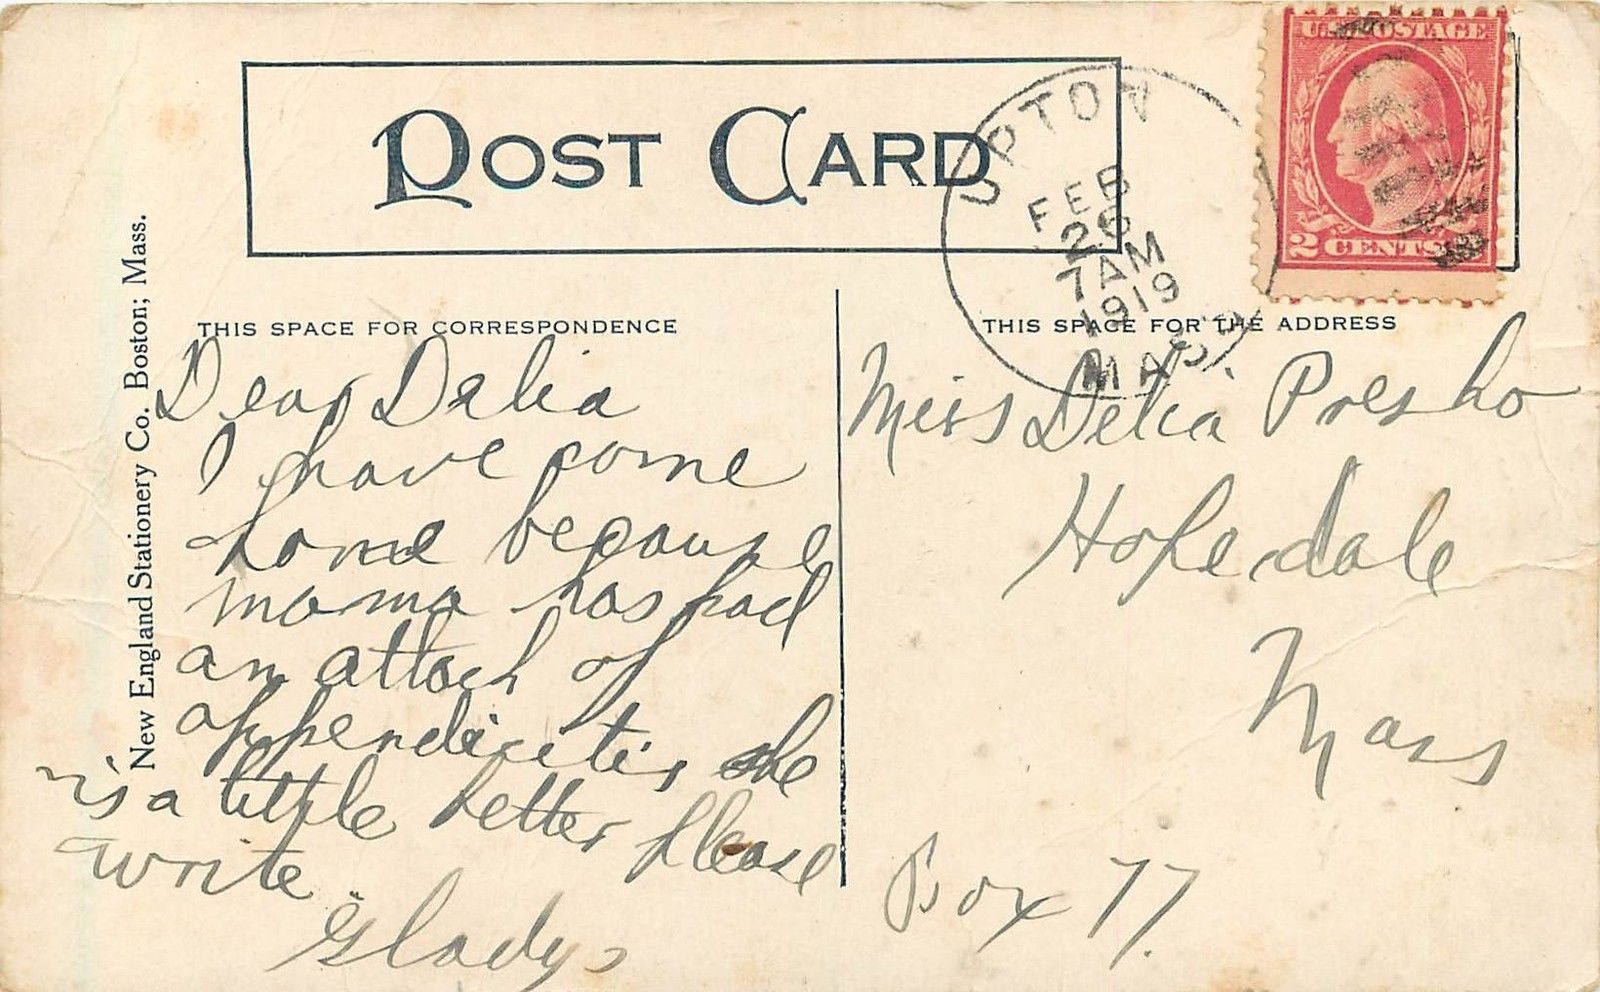 POST CARD
UPTON
FEB
26
7AM
1919
MASS.
U.S. POSTAGE
2 CENTS 2
THIS SPACE FOR CORRESPONDENCE
THIS SPACE FOR THE ADDRESS
New England Stationery Co. Boston; Mass.
Dear Delia
I have come
home because
mama has had
an attack of
appendicitis she
is a little better please
write.
"Gladys
Miss Delia Presho
Hopedale
Mass
Box 77.